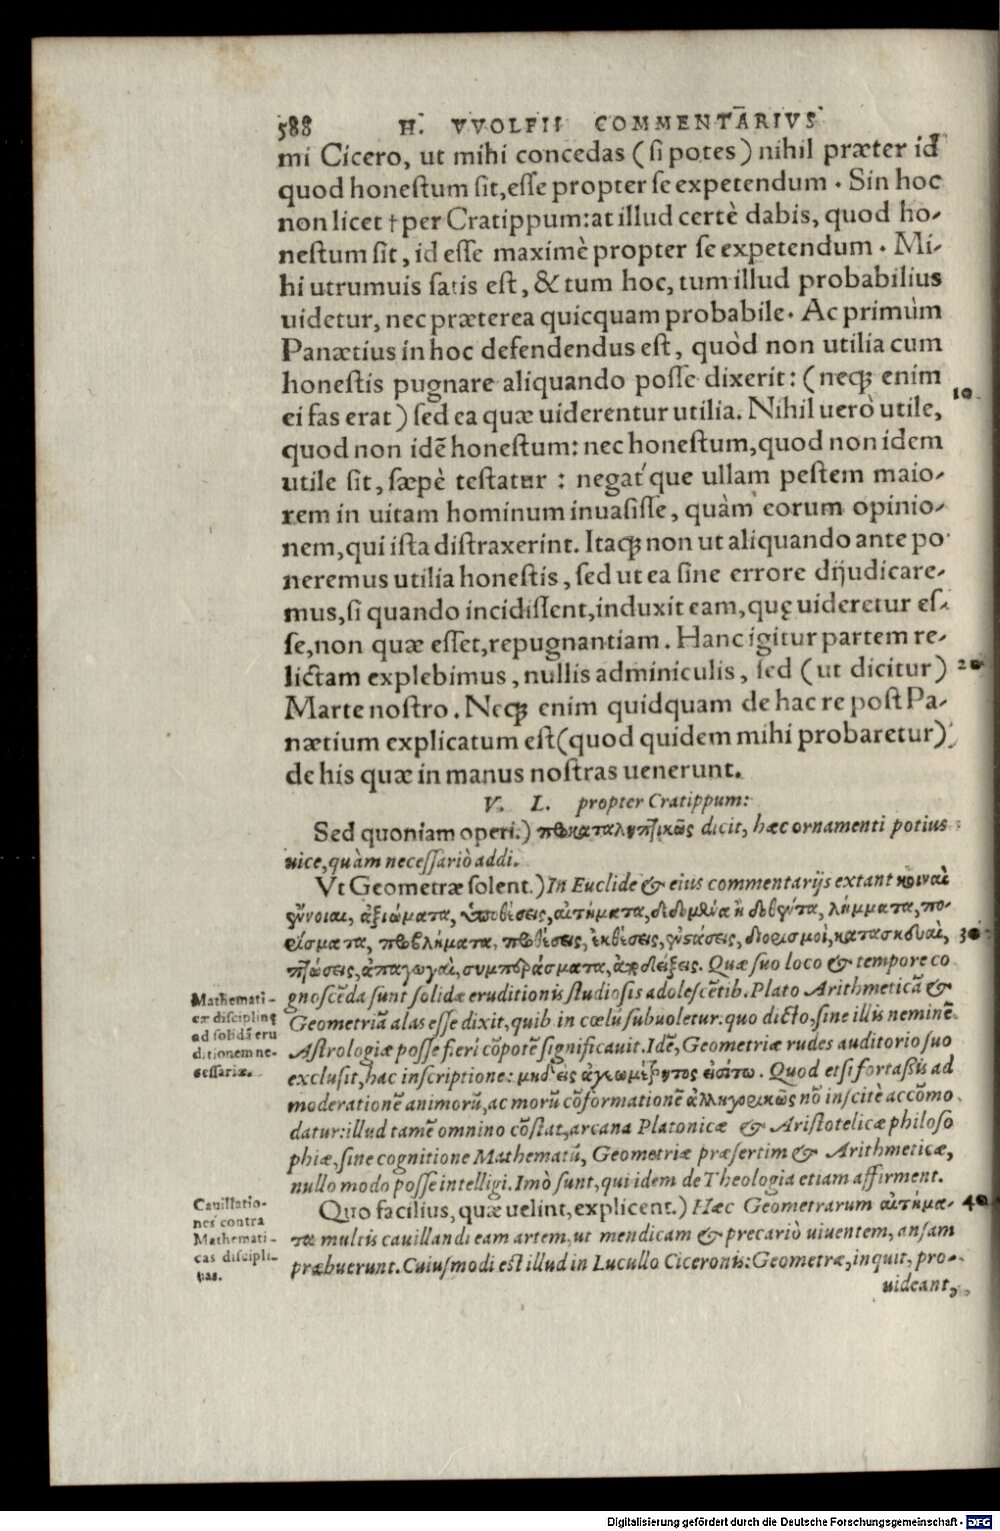 588 H. VVOLFII COMMENTARIVS
mi Cicero, ut mihi concedas (si potes) nihil præter id
quod honestum sit, esse propter se expetendum. Sin hoc
non licet †per Cratippum: at illud certè dabis, quod ho-
nestum sit, id esse maximè propter se expetendum. Mi-
hi utrumuis satis est, & tum hoc, tum illud probabilius
uidetur, nec præterea quicquam probabile. Ac primùm
Panætius in hoc defendendus est, quòd non utilia cum
honestis pugnare aliquando posse dixerit: (neq; enim
10
ei fas erat) sed ea quæ uiderentur utilia. Nihil uerò utile,
quod non idẽ honestum: nec honestum, quod non idem
utile sit, sæpè testatur: negat'que ullam pestem maio-
rem in uitam hominum inuasisse, quàm eorum opinio-
nem, qui ista distraxerint. Itaq; non ut aliquando ante po
neremus utilia honestis, sed ut ea sine errore dijudicare-
mus, si quando incidissent, induxit eam, quę uideretur es-
se, non quæ esset, repugnantiam. Hanc igitur partem re-
lictam explebimus, nullis adminiculis, sed (ut dicitur) 20
Marte nostro. Neq; enim quidquam de hac re post Pa-
nætium explicatum est (quod quidem mihi probaretur)
de his quæ in manus nostras uenerunt.
V. L. propter Cratippum:
Sed quoniam operi.) προκαταληπτικῶς dicit, hæc ornamenti potius
uice, quàm necessariò addi.
Vt Geometræ solent.) In Euclide & eius commentarijs extant κοιναὶ
ἔννοιαι, ἀξιώματα, ὑποθέσεις, αἰτήματα, δεδομένα ἢ δοθέντα, λήμματα, πο-
ρίσματα, προβλήματα, προθέσεις, ἐκθέσεις, ἐνστάσεις, διορισμοὶ, κατασκευαὶ, 30
πτώσεις, ἀπαγωγαὶ, συμπεράσματα, ἀποδείξεις. Quæ suo loco & tempore co
gnoscẽda sunt solidæ eruditionis studiosis adolescẽtib. Plato Arithmeticã &
Geometriã alas esse dixit, quib. in cœlũ subuoletur: quo dicto, sine illis neminẽ
Astrologiæ posse fieri cõpotẽ significauit. Idẽ, Geometriæ rudes auditorio suo
exclusit, hac inscriptione: μηδεὶς ἀγεωμέτρητος εἰσίτω. Quod etsi fortaßis ad
moderationẽ animorũ, ac morũ cõformationẽ ἀλληγορικῶς nõ inscitè accõmo
datur: illud tamẽ omnino cõstat, arcana Platonicæ & Aristotelicæ philoso
phiæ, sine cognitione Mathematũ, Geometriæ præsertim & Arithmeticæ,
nullo modo posse intelligi. Imò sunt, qui idem de Theologia etiam affirment.
Mathemati-
cæ disciplinę
ad solidã eru
ditionem ne-
cessariæ.
Quo facilius, quæ uelint, explicent.) Hæc Geometrarum αἰτήμα- 40
τα multis cauillandi eam artem, ut mendicam & precariò uiuentem, ansam
præbuerunt. Cuiusmodi est illud in Lucullo Ciceronis: Geometræ, inquit, pro-
uideant,
Cauillatio-
nes contra
Mathemati-
cas discipli-
nas.
Digitalisierung gefördert durch die Deutsche Forschungsgemeinschaft - DFG